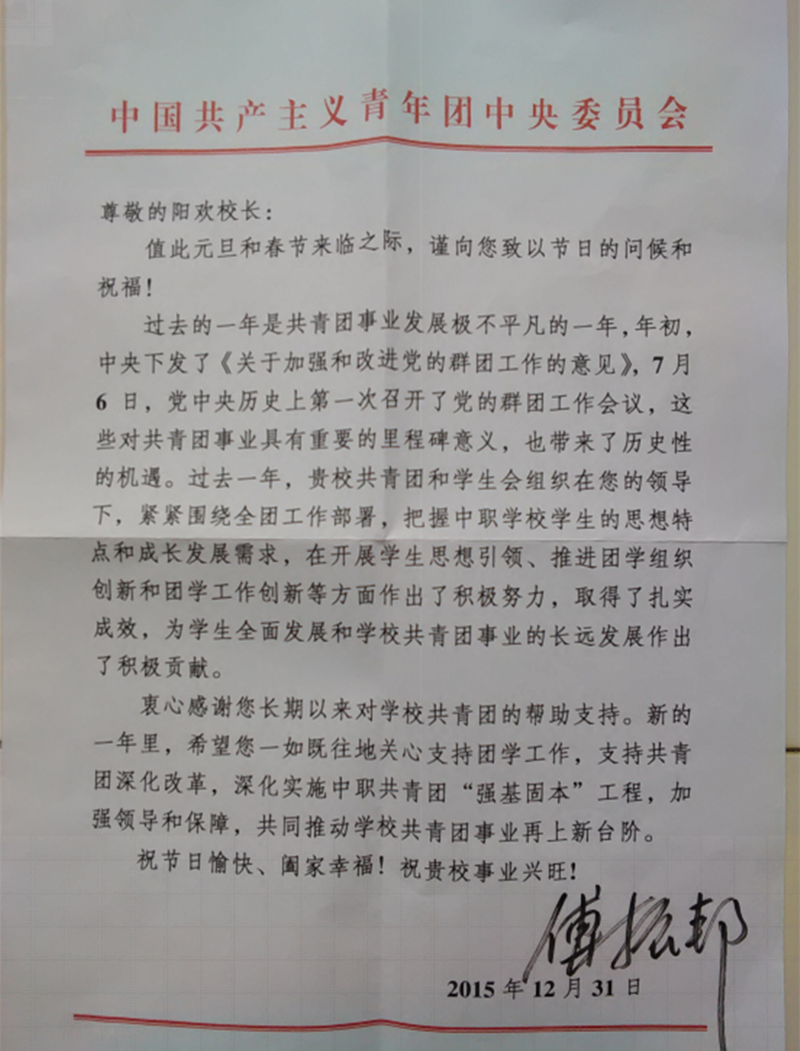 中国共产主义青年团中央委员会
尊敬的阳欢校长：
值此元旦和春节来临之际，谨向您致以节日的问候和
祝福！
过去的一年是共青团事业发展极不平凡的一年，年初，
中央下发了《关于加强和改进党的群团工作的意见》，7月
6日，党中央历史上第一次召开了党的群团工作会议，这
些对共青团事业具有重要的里程碑意义，也带来了历史性
的机遇。过去一年，贵校共青团和学生会组织在您的领导
下，紧紧围绕全团工作部署，把握中职学校学生的思想特
点和成长发展需求，在开展学生思想引领、推进团学组织
创新和团学工作创新等方面作出了积极努力，取得了扎实
成效，为学生全面发展和学校共青团事业的长远发展作出
了积极贡献。
衷心感谢您长期以来对学校共青团的帮助支持。新的
一年里，希望您一如既往地关心支持团学工作，支持共青
团深化改革，深化实施中职共青团“强基固本”工程，加
强领导和保障，共同推动学校共青团事业再上新台阶。
祝节日愉快、阖家幸福！祝贵校事业兴旺！
傅振邦
2015年12月31日